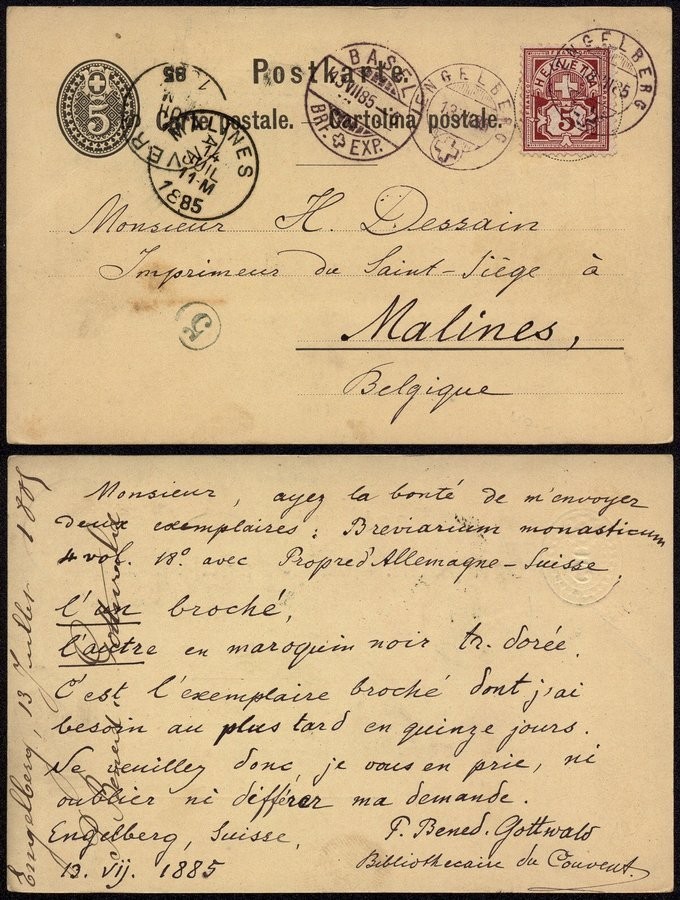 Postkarte.
Carte postale. — Cartolina postale.
5
BASEL
13 VII 85
BRF. EXP.
ENGELBERG
HELVETIA
5
ENGELBERG
MALINES
14
JUIL
11-M
1885
85
Monsieur H. Dessain
Imprimeur du Saint-Siège à
Malines,
Belgique
5
Monsieur, ayez la bonté de m'envoyer
deux exemplaires: Breviarium monasticum
4 vol. 18° avec Propre d'Allemagne-Suisse,
l'un broché,
l'autre en maroquin noir tr. dorée.
C'est l'exemplaire broché dont j'ai
besoin au plus tard en quinze jours.
Ne veuillez donc, je vous en prie, ni
oublier ni différer ma demande.
Engelberg, Suisse, F. Bened. Gottwald
13. VII. 1885 Bibliothecaire du Couvent.
Engelberg, 13 Juillet 1885